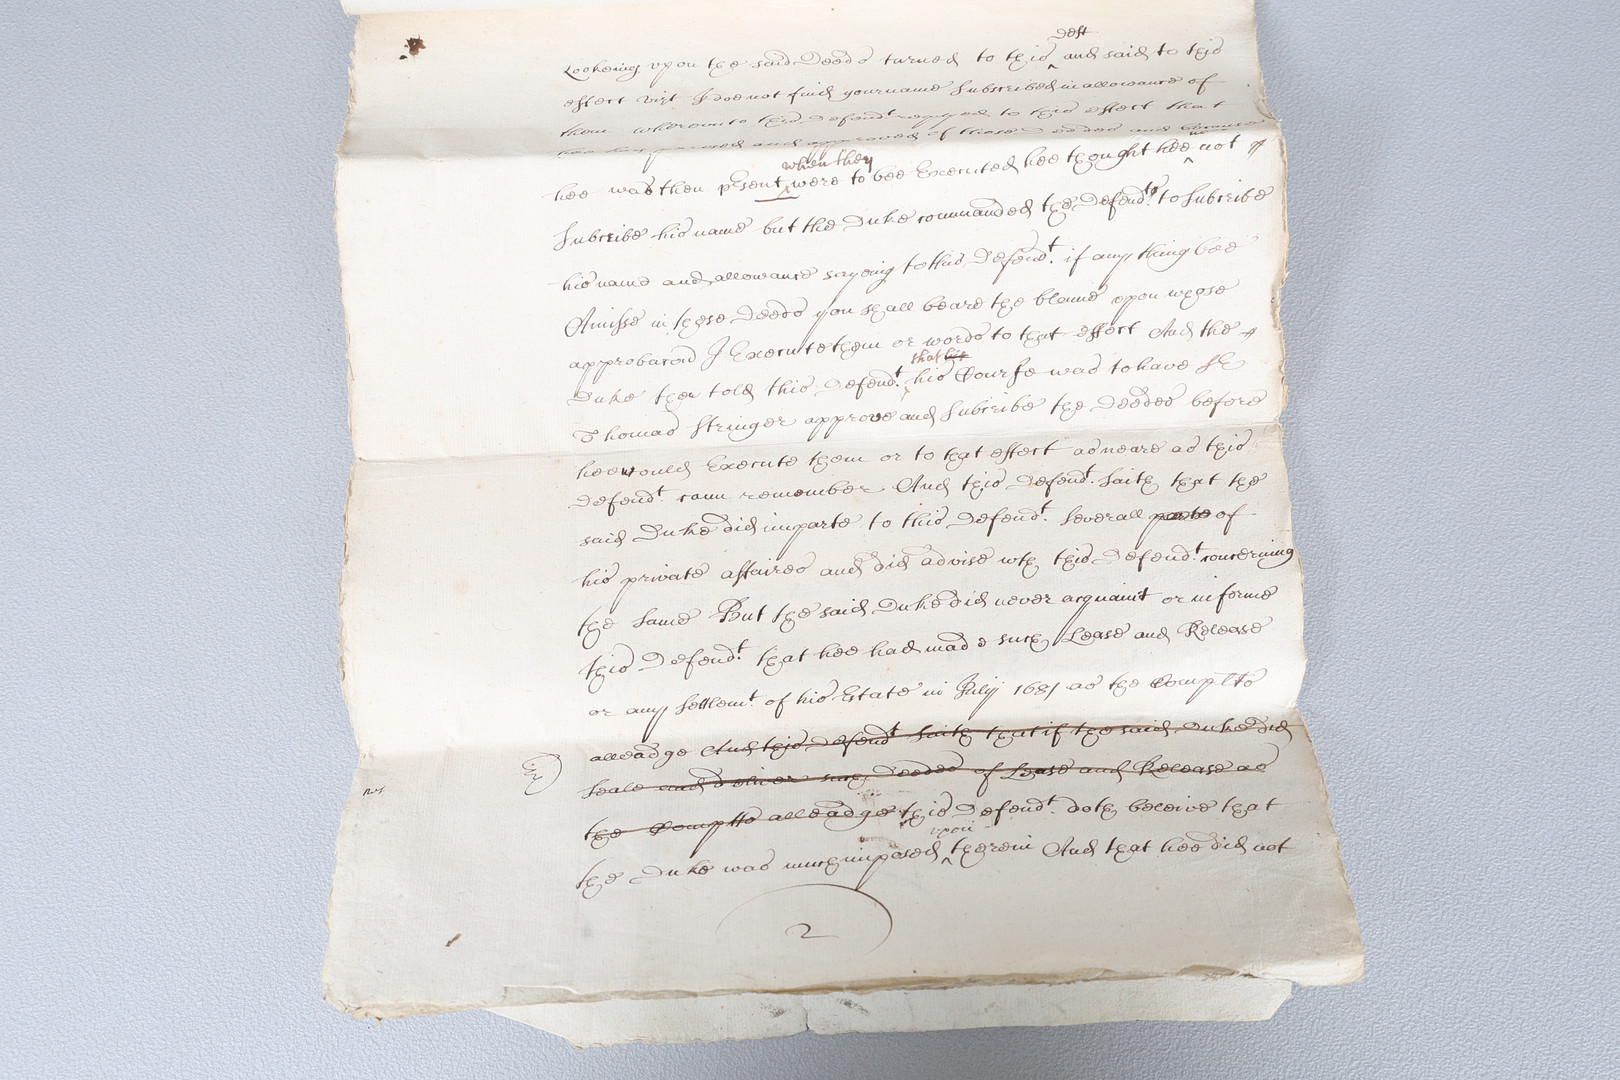 deft
Lookeing upon the said Deeds turned to this and said to this
effect vizt I doe not find your name Subscribed in allowance of
them whereunto this Defendt replyed to this effect that
hee had perused and approved of those Deedes and
when they
hee was then present were to bee Executed hee thought hee not
Subscribe his name but the Duke commanded the Defendt to Subscribe
his name and allowance saying to this Defendt. if any thing bee
Amisse in these Deeds you shall beare the blame upon whose
approbacon I Execute them or words to that effect And the
that his
Duke then told this Defendt. his Course was to have Sr
Thomas Stringer approve and Subscribe the Deedes before
hee would Execute them or to that effect as neare as this
Defendt. cann remember And this Defendt. Saith that the
said Duke did imparte to this Defendt. Severall parte of
his private affaires and did advise wth this Defendt. concerning
the same But the said Duke did never acquaint or informe
this Defendt. that hee had made such Lease and Release
or any Settlemt. of his Estate in July 1681 as the Complts
alleadge And this Defendt Saith that if the said Duke did
Seale and deliver such Deedes of Lease and Release as
the Complts alleadge this Defendt. doth beleive that
upon
the Duke was much imposed therein And that hee did not
2